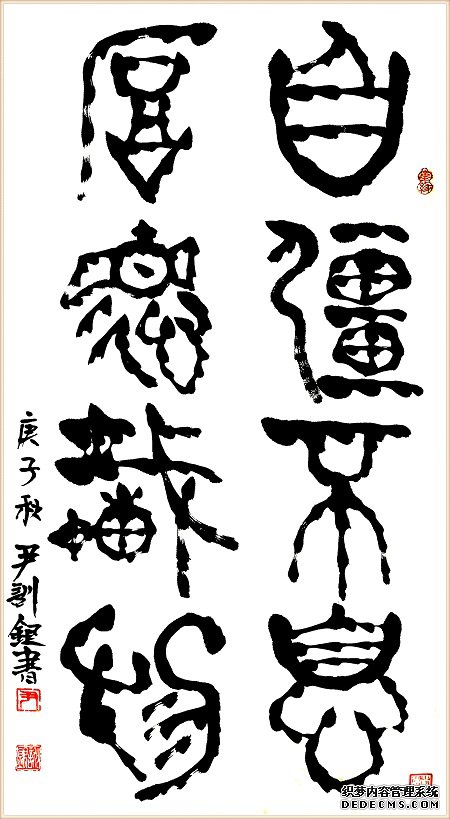 自彊不息
厚悳載物
庚子秋尹訓銀書
织梦内容管理系统
DEDECMS.COM